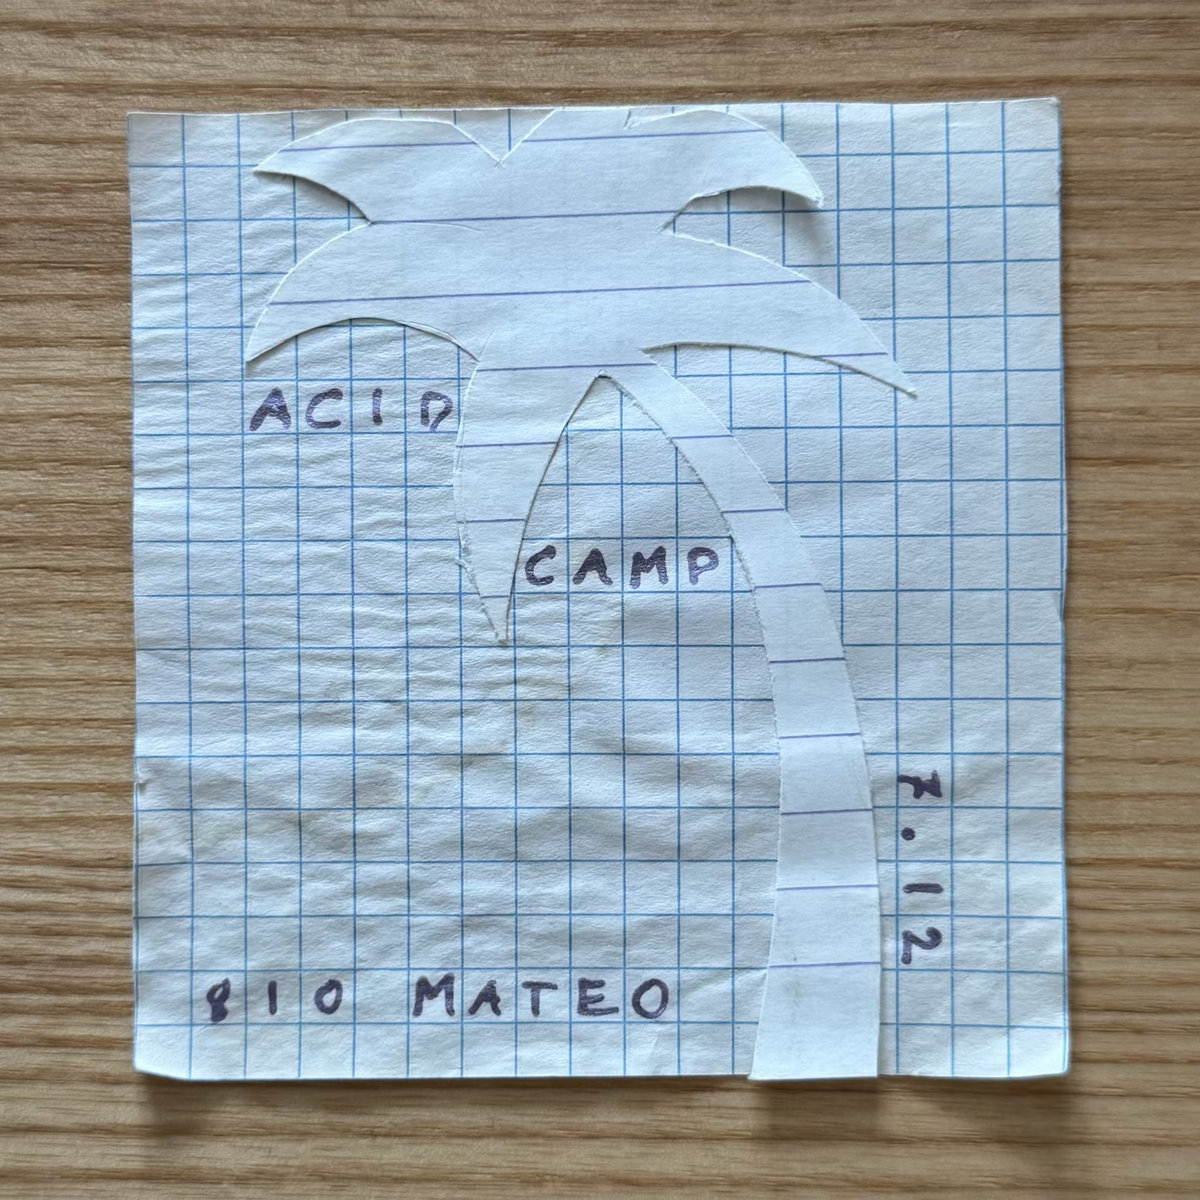 ACID
CAMP
7.12
810 MATEO